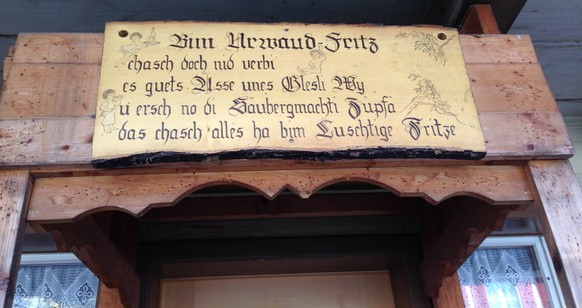 Bim Urwaud-Fritz
chasch doch nid verbi
es guets Ässe unes Glesli Wy
u ersch no di Säubergmachti Züpfa
das chasch alles ha bym Luschtige Fritze